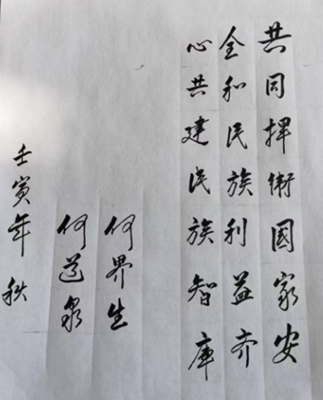 共同捍衛国家安
全和民族利益齐
心共建民族智庫
何界生
何道泉
壬寅年秋